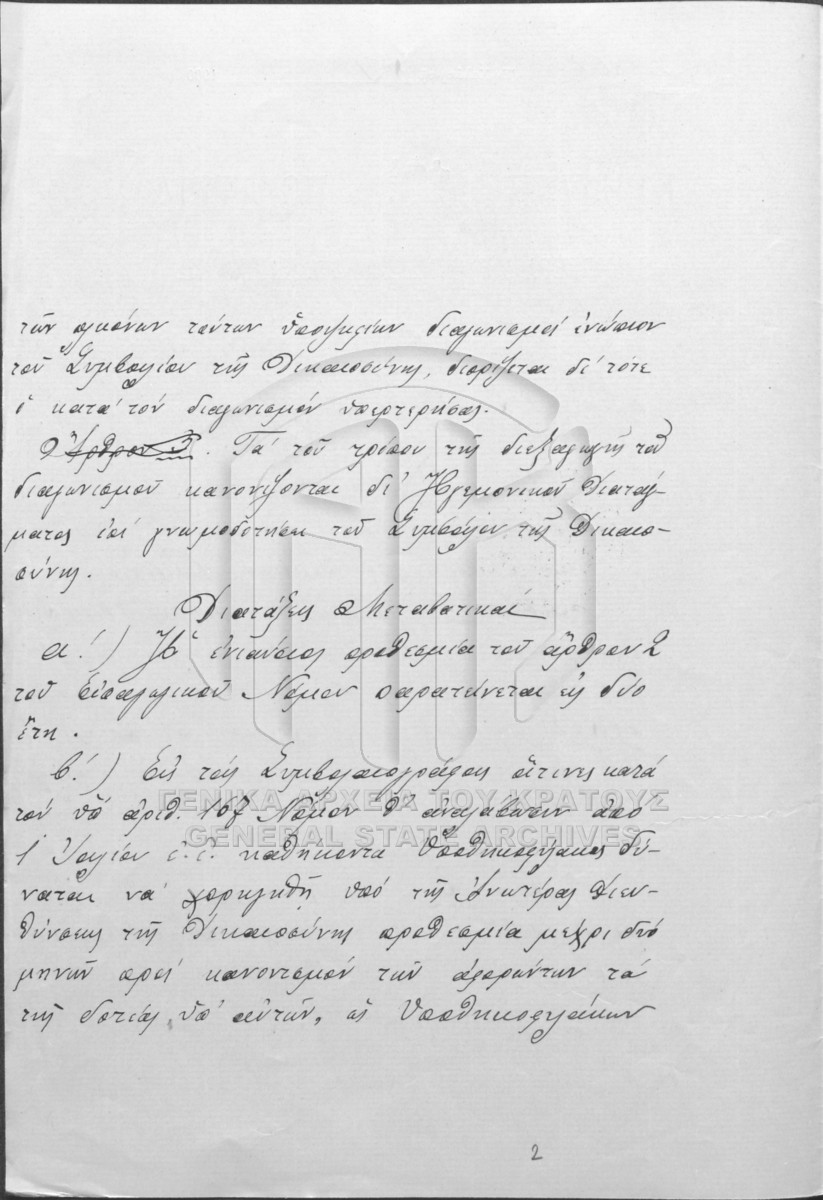 τῶν πλειόνων τούτων ὑποψηφίων διαγωνισμοί ἐνώπιον
τοῦ Συμβουλίου τῆς Δικαιοσύνης, διορίζεται δέ τότε
ὁ κατά τόν διαγωνισμόν ὑπερτερήσας.
Ἄρθρον 3. Τά τοῦ τρόπου τῆς διεξαγωγῆς τοῦ
διαγωνισμοῦ κανονίζονται δι' Ἡγεμονικοῦ Διατάγ-
ματος ἐπί γνωμοδοτήσει τοῦ Συμβουλίου τῆς Δικαιο-
σύνης.
Διατάξεις Μεταβατικαί
α!) Ἡ ἐνιαύσιος προθεσμία τοῦ ἄρθρου 2
τοῦ Εἰσαγωγικοῦ Νόμου παρατείνεται εἰς δύο
ἔτη.
β!) Εἰς τούς Συμβολαιογράφους οἵτινες κατά
τόν ὑπ' ἀριθ. 107 Νόμον θ' ἀναλάβωσιν ἀπό
ΓΕΝΙΚΑ ΑΡΧΕΙΑ ΤΟΥ ΚΡΑΤΟΥΣ
GENERAL STATE ARCHIVES
1 Ἰουλίου ἐ.ἔ. καθήκοντα Ὑποθηκοφύλακος δύ-
ναται νά χορηγηθῇ ὑπό τῆς Ἀνωτέρας Διευ-
θύνσεως τῆς Δικαιοσύνης προθεσμία μέχρι δύο
μηνῶν πρός κανονισμόν τῶν ἀφορώντων τά
τῆς ὑπ' αὐτῶν, ὡς Ὑποθηκοφυλάκων
2